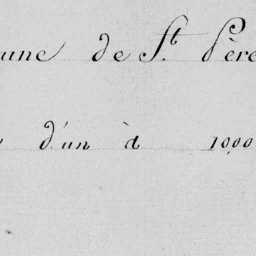 une de St. Père
d'un à 1000